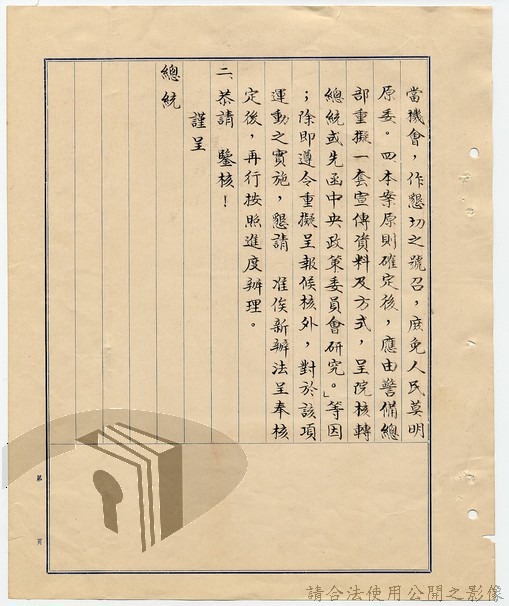 當機會，作懇切之號召，庶免人民莫明
原委。四本案原則確定後，應由警備總
部重擬一套宣傳資料及方式，呈院核轉
總統或先函中央政策委員會研究。」等因
；除即遵令重擬呈報候核外，對於該項
運動之實施，懇請　准俟新辦法呈奉核
定後，再行按照進度辦理。
二、恭請　鑒核！
謹呈
總統
第　頁
請合法使用公開之影像